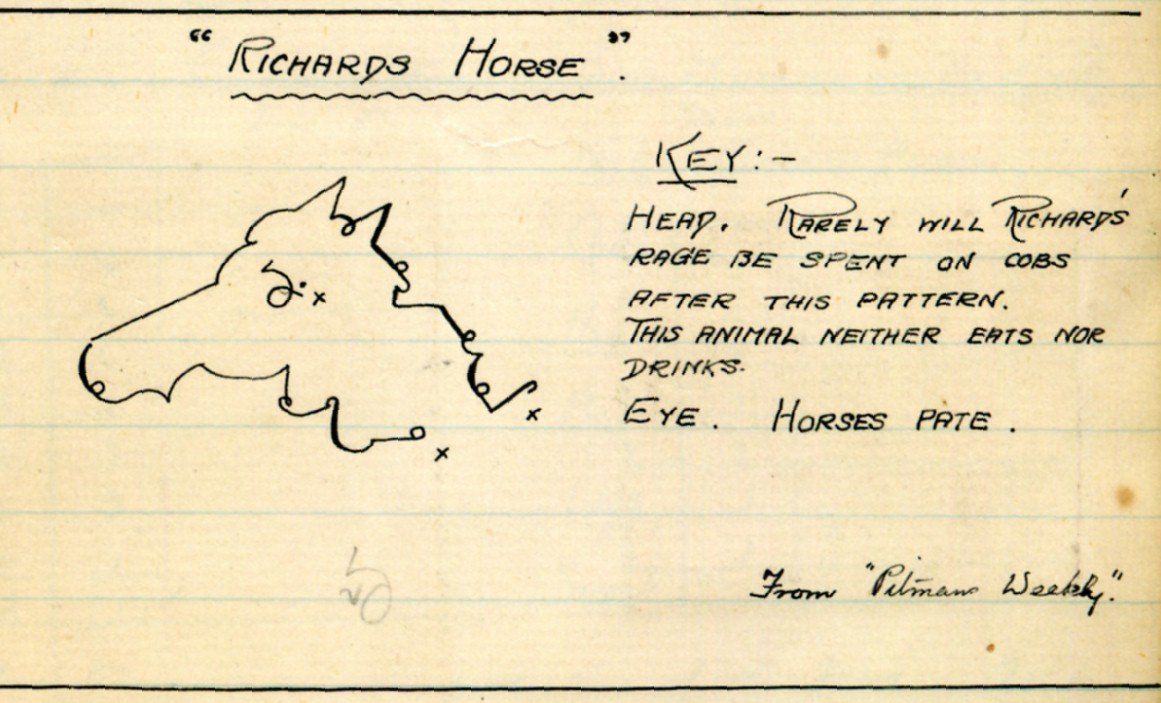 “ RICHARDS HORSE ”.
KEY:-
HEAD. RARELY WILL RICHARD'S
RAGE BE SPENT ON COBS
AFTER THIS PATTERN.
THIS ANIMAL NEITHER EATS NOR
DRINKS.
EYE. HORSES PATE.
From "Pitmans Weekly."